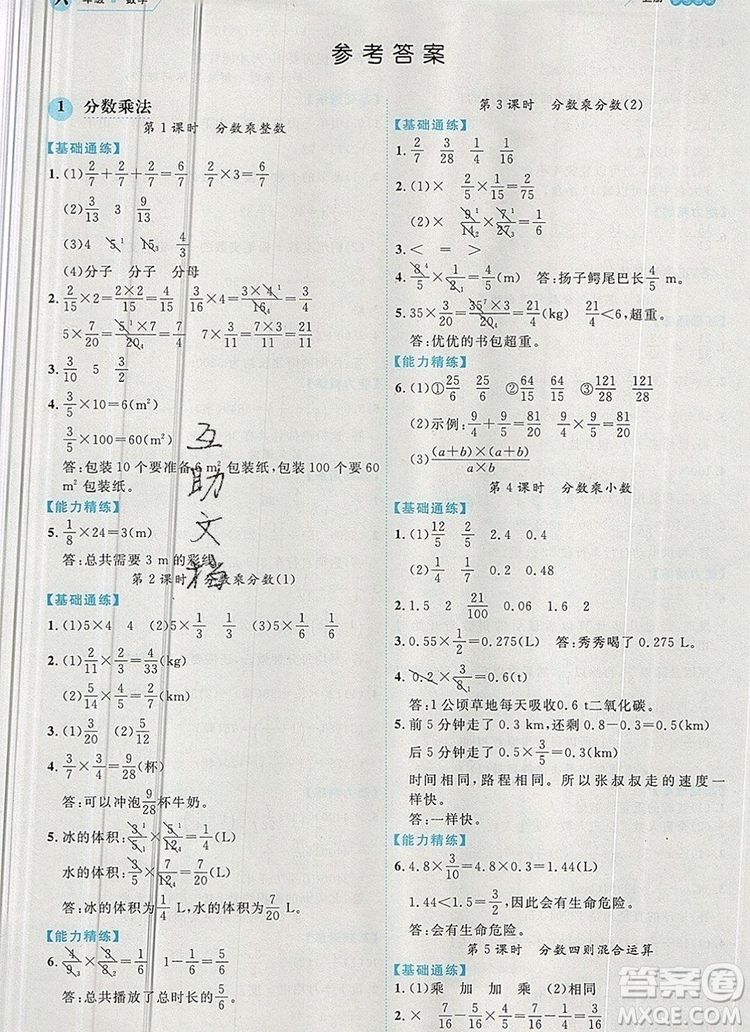 年级 数学
上册
参考答案
1 分数乘法
第1课时 分数乘整数
【基础通练】
1. (1) 2/7+2/7+2/7=6/7 2/7×3=6/7
(2) 3/13 3 2/13
(3) 4 5 1 15 3 4/3
(4) 分子 分子 分母
2. 2/15×2=(2×2)/15=4/15 3/16×4=(3×4 1)/16 4=3/4
5×7/20=(5 1×7)/20 4=7/4 7×3/11=(7×3)/11=21/11
3. 3/10 5 2/3
4. 3/5×10=6(m²)
3/5×100=60(m²)
答:包装10个要准备6 m²包装纸,包装100个要60
m²包装纸。
【能力精练】
5. 1/8×24=3(m)
答:总共需要3 m的彩线。
第2课时 分数乘分数(1)
【基础通练】
1. (1) 5×4 4 (2) 5×1/3 1/3 (3) 5×1/5 1
2. (1) 2/11×2/3=4/33(kg)
(2) 5/14×4/5=2/7(m)
3. (1) 3/20 (2) 2/9
4. 3/7×3/4=9/28(杯)
答:可以冲泡9/28杯牛奶。
5. 冰的体积:3 1/5 1×5 1/12 4=1/4(L)
水的体积:3 1/5×7/12 4=7/20(L)
答:冰的体积为1/4 L,水的体积为7/20 L。
【能力精练】
互助文档
第3课时 分数乘分数(2)
【基础通练】
1. 2/7 3/28 1/4 1/16
2. (1) × 2/5×1/15=2/75
(2) ×
3. < = >
答:扬子鳄尾巴长4/5 m。
5. 35×3/20=(35 7×3)/20 4=21/4(kg) 21/4<6,超重。
答:优优的书包超重。
【能力精练】
6. (1) ①25/6 25/6 ②64/15 64/15 ③121/30 121/30
(2) 示例:9/4+9/5=81/20 9/4×9/5=81/20
(3) (a+b)×(a+b)/(a×b)
第4课时 分数乘小数
【基础通练】
1. (1) 12/5 2/5 2.4 0.4
(2) 1/4 0.8 0.2 0.2
2. 1.5 0.4 21/100 0.06 1.6 2
3. 0.55×1/2=0.275(L) 答:秀秀喝了0.275 L。
答:1公顷草地每天吸收0.6 t二氧化碳。
5. 前5分钟走了0.3 km,还剩0.8-0.3=0.5(km)
后5分钟走了0.5×3/5=0.3(km)
时间相同,路程相同。所以张叔叔走的速度
一样快。
答:一样快。
【能力精练】
6. 4.8×3/10=1.44(L)
1.44<1.5,因此会有生命危险。
答:会有生命危险。
第5课时 分数四则混合运算
【基础通练】
1. (1) 乘 加 加 乘 (2) 相同
答:总共播放了总时长的
答案圈
MXQE.COM